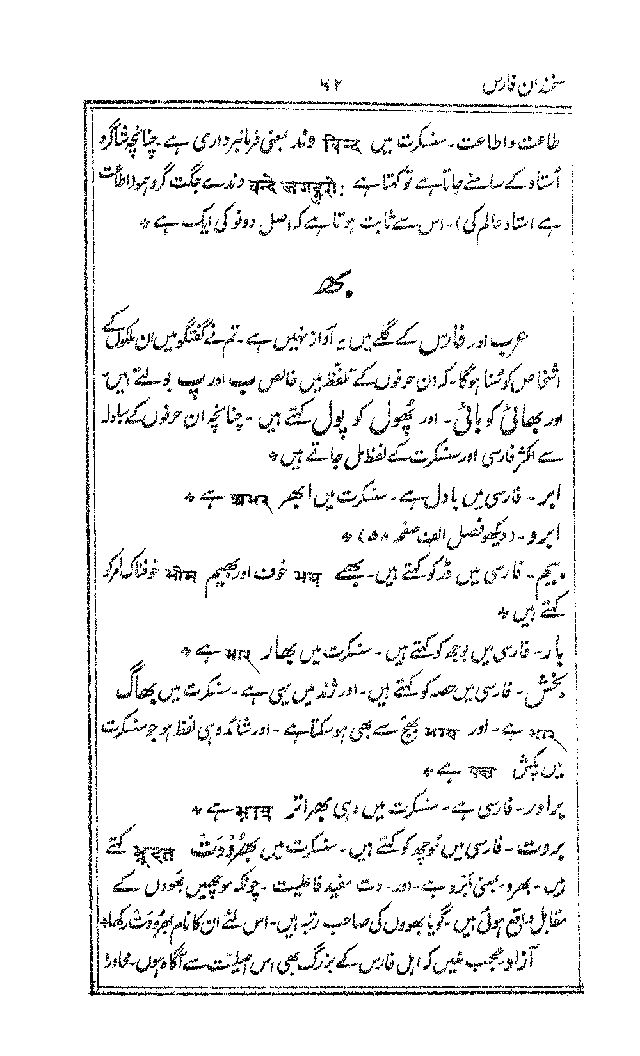 سخندان فارس ۶۲
طاعت و اطاعت ۔ سنسکرت میں وند विन्द بمعنی فرمانبرداری ہے ۔ چنانچہ شاگرد
اُستاد کے سامنے جاتا ہے تو کہتا ہے वन्दे जगद्गुरो: وندے جگت گرو ہو (اطاعت
ہے استاد عالم کی) ۔ اس سے ثابت ہوتا ہے کہ اصل دونو کی ایک ہے *
بھ
عرب اور فارس کے گلے میں یہ آواز نہیں ہے ۔ تم نے گفتگو میں ان ملکوں کے
اشخاص کو سُنا ہوگا ۔ کہ ان حرفوں کے تلفظ میں خالص ب اور پ بولتے ہیں ۔
اور بھائی کو بائی ۔ اور پھُول کو پول کہتے ہیں ۔ چنانچہ ان حرفوں کے مبادلہ
سے اکثر فارسی اور سنسکرت کے لفظ مل جاتے ہیں *
ابر ۔ فارسی میں بادل ہے ۔ سنسکرت میں ابھر अभर ہے *
ابرو ۔ (دیکھو فصل الف صفحہ ۵۸) *
بیم ۔ فارسی میں ڈر کو کہتے ہیں ۔ بھے भय خوف اور بھیم भीम خوفناک امر کو
کہتے ہیں *
بار ۔ فارسی میں بوجھ کو کہتے ہیں ۔ سنسکرت میں بھار भार ہے *
بخش ۔ فارسی میں حصہ کو کہتے ہیں ۔ اور ژند میں یہی ہے ۔ سنسکرت میں بھاگ
भाग ہے ۔ اور भज بھج سے بھی ہو سکتا ہے ۔ اور شائد وہی لفظ ہو جو سنسکرت
میں پکش पक्ष ہے *
برادر ۔ فارسی ہے ۔ سنسکرت میں وہی بھراتر ہے *
بروت ۔ فارسی میں مُوچھ کو کہتے ہیں ۔ سنسکرت میں بھرُووَت کہتے
ہیں ۔ بھرو ۔ بمعنی اَبرُو ہے ۔ اور ۔ وت مفید فاعلیت ۔ چونکہ موچھیں بھووں کے
مقابل واقع ہوئی ہیں ۔ گویا بھووں کی صاحب رتبہ ہیں ۔ اس لئے ان کا نام بھرووت رکھا *
آزاد ۔ عجب نہیں کہ اہل فارس کے بزرگ بھی اس اصلیت سے آگاہ ہوں ۔ محاورہ